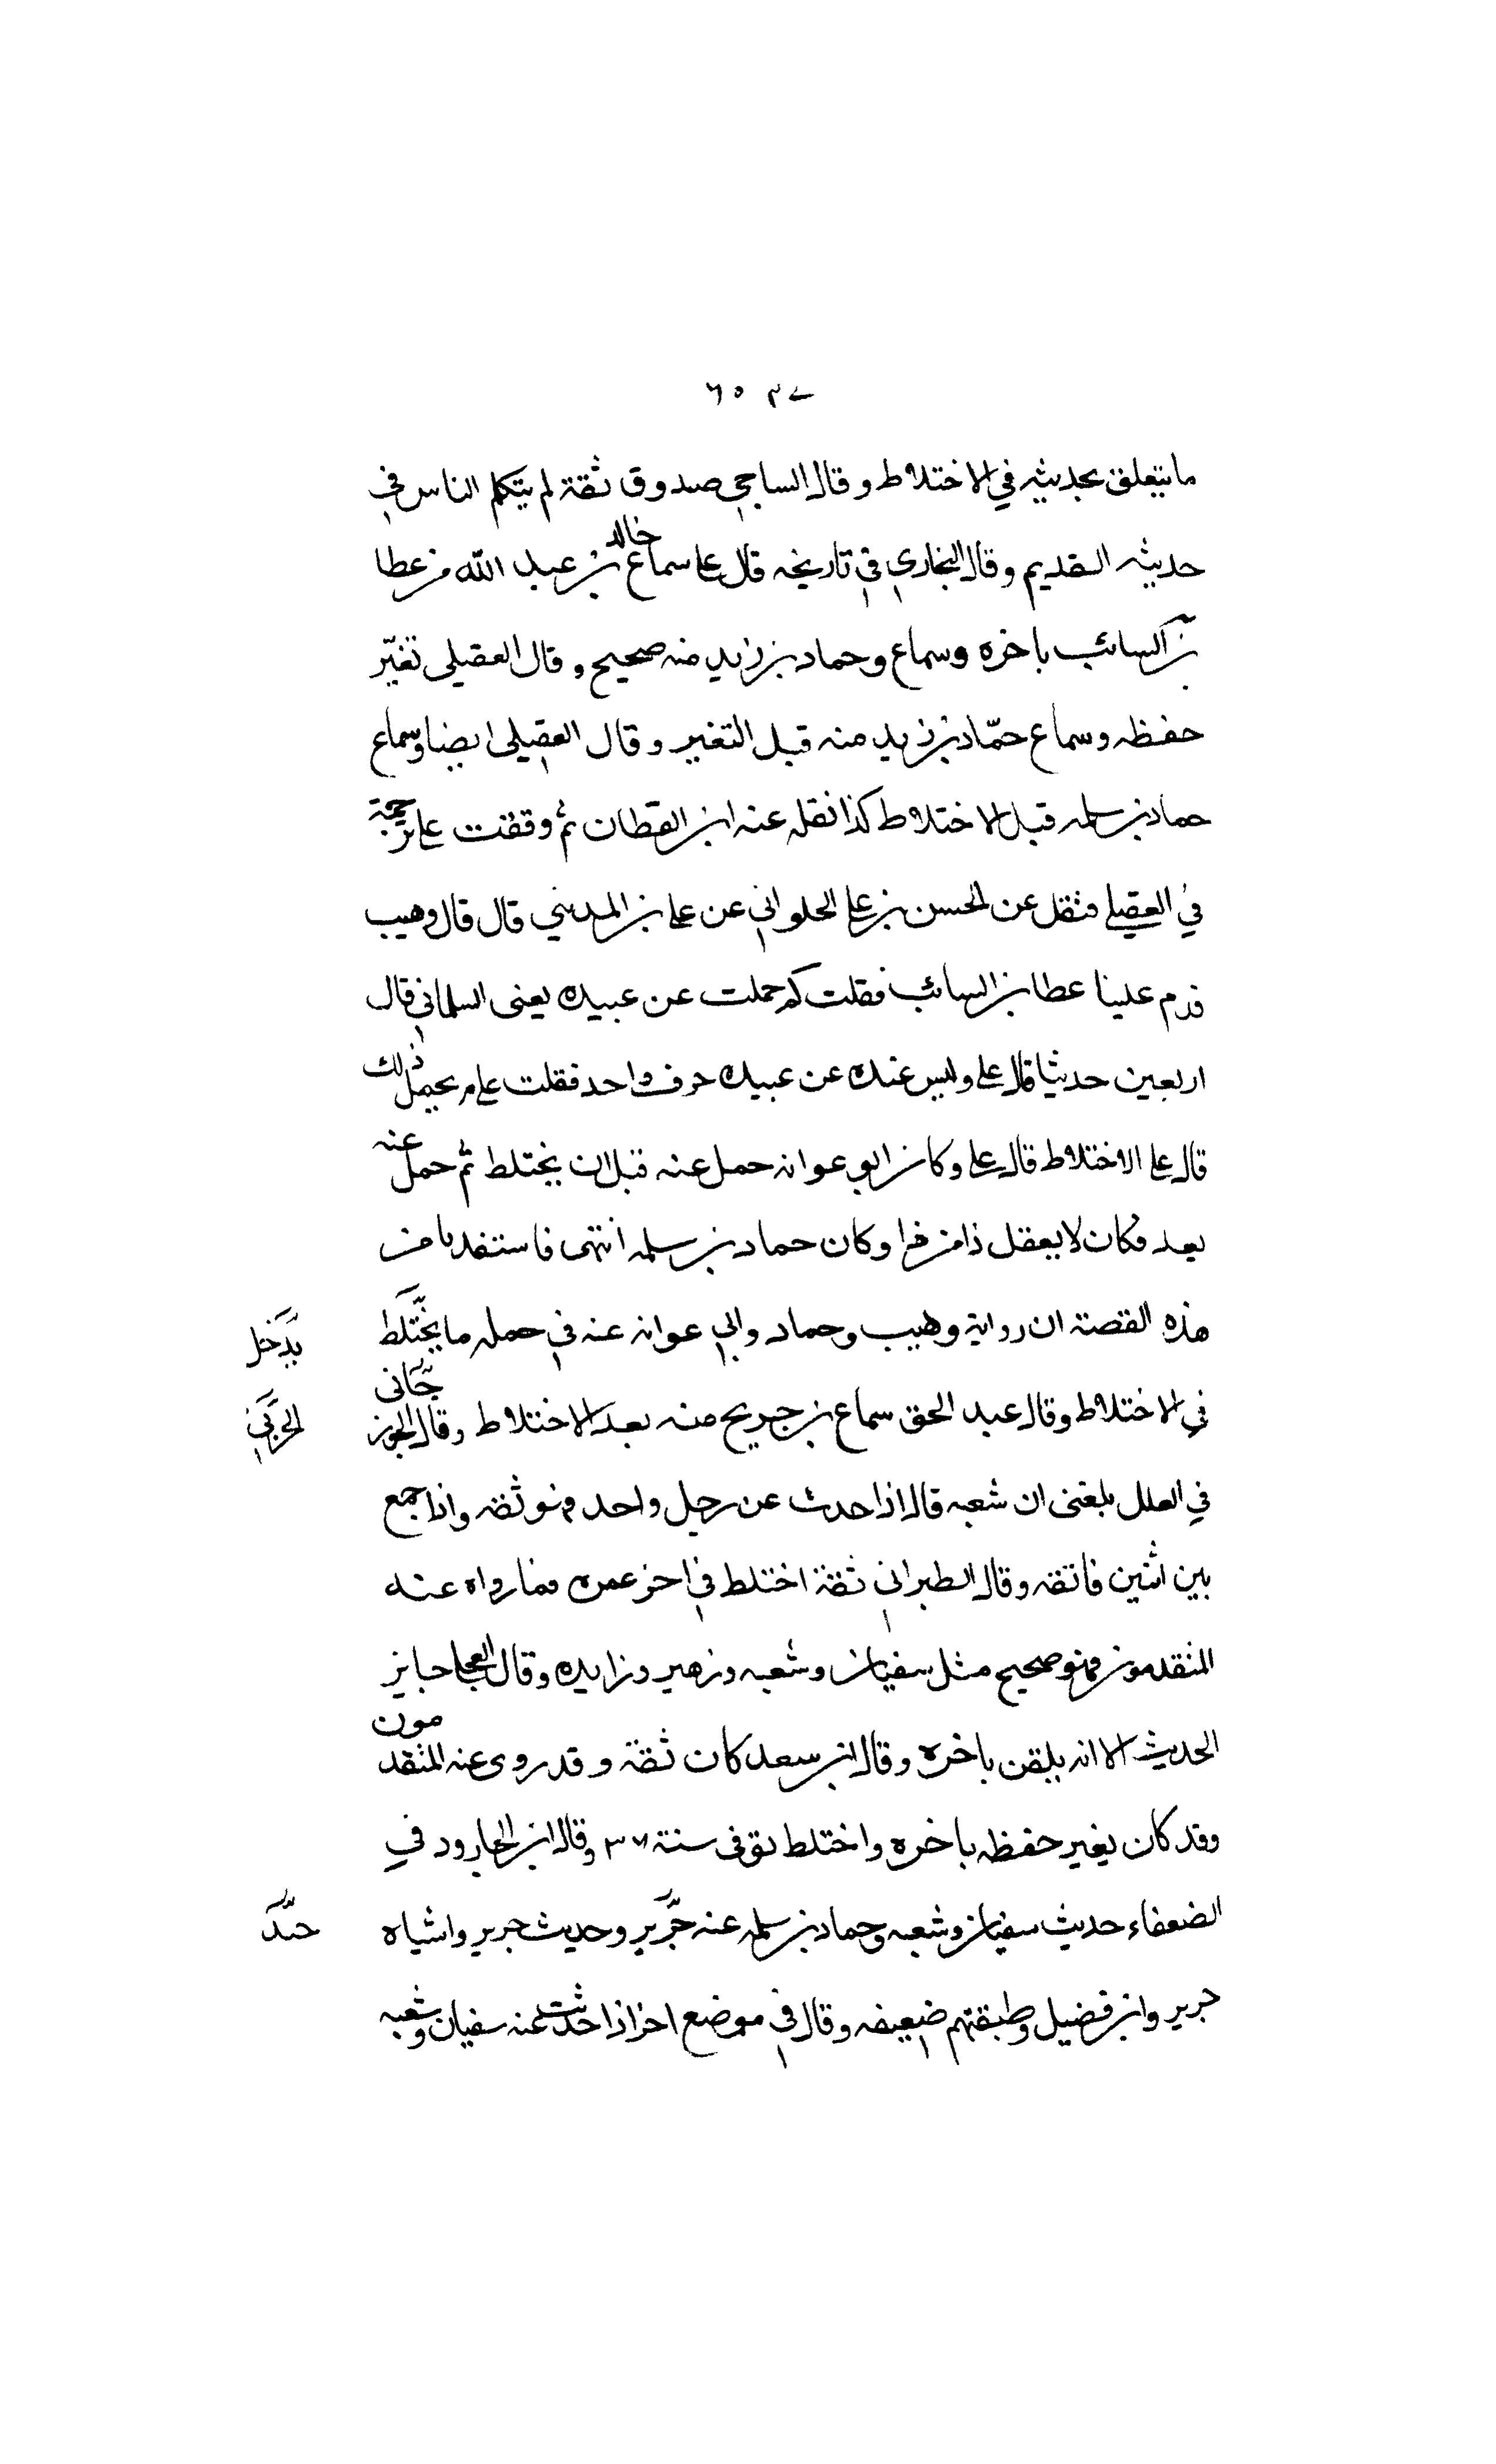 ما يتعلق بحديثه في الاختلاط وقال الساجي صدوق ثقة لم يتكلم الناس في
حديثه القديم وقال البخاري في تاريخه قال علي سماع خالد بن عبد الله من عطا
بن السائب باخره وسماع وحماد بن زيد منه صحيح وقال العقيلي تغيّر
حفظه وسماع حمّاد بن زيد منه قبل التغير وقال العقيلي ايضا وسماع
حماد بن سلمه قبل الاختلاط كذا نقله عنه ابن القطان ثم وقفت على ترجمة
في العقيلي فنقل عن الحسن بن علي الحلواني عن علي بن المديني قال قال وهيب
قدم علينا عطا بن السائب فقلت كم حملت عن عبيده يعني السلماني قال
اربعين حديثا قال علي وليس عنده عن عبيده حرف واحد فقلت علام يحمل ذلك
قال علي الاختلاط قال علي وكان ابو عوانه حمل عنه قبل ان يختلط ثم حمل عنه
بعد فكان لا يعقل ذا من ذا وكان حماد بن سلمه انتهى فاستفدنا من
هذه القصة ان رواية وهيب وحماد وابي عوانه عنه في حمله ما يختلط
يدخل
في الاختلاط وقال عبد الحق سماع بن جريح منه بعد الاختلاط وقال الجوزجاني
الحربي
في العلل بلغني ان شعبه قال اذا حدث عن رجل واحد فهو ثقه واذا جمع
بين اثنين فاتقه وقال الطبراني ثقة اختلط في اخر عمره فما رواه عنه
المتقدمون فهو صحيح مثل سفيان وشعبه وزهير وزايده وقال العجلي جايز
الحديث الا انه يلقن باخره وقال ابن سعد كان ثقة وقد روى عنه المتقدمون
وقد كان يغير حفظه باخره واختلط توفى سنة ٣٧ وقال ابن الجارود في
الضعفاء حديث سفيان وشعبه وحماد بن سلمه عنه جرير وحديث جرير واشباه
جيد
جرير وابن فضيل وطبقتهم ضعيفه وقال في موضع اخر اذا حدث عنه سفيان وشعبه